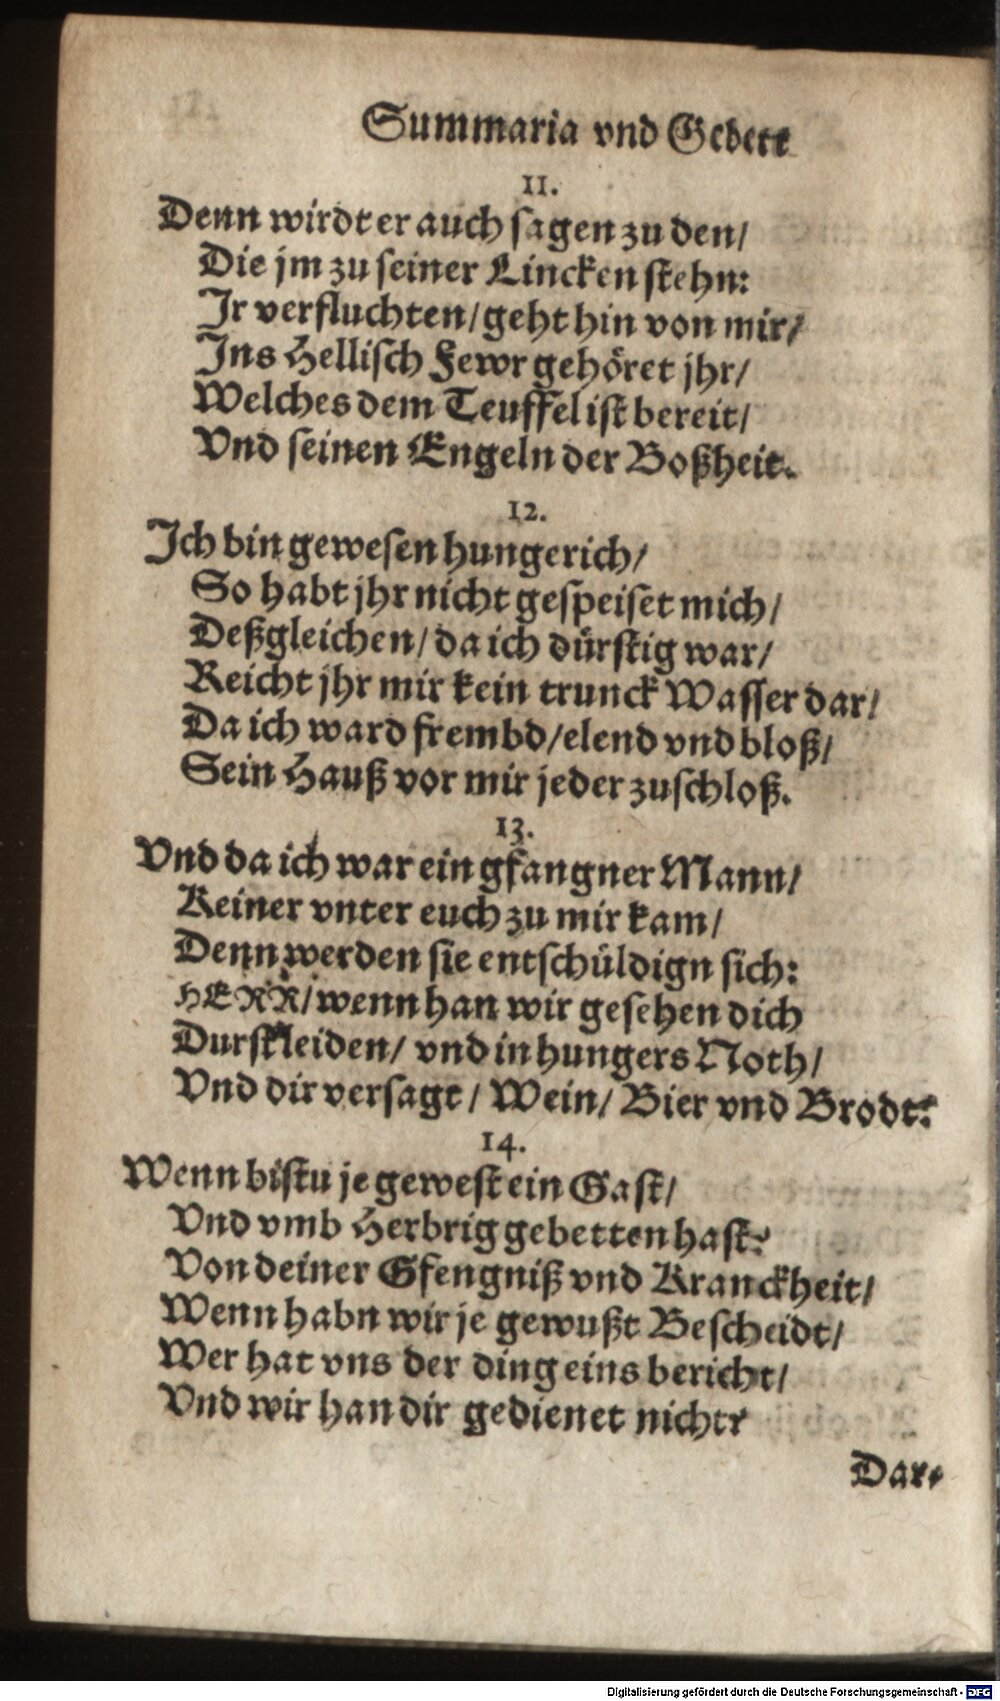 Summaria vnd Gebett
11.
Denn wirdt er auch sagen zu den/
Die jm zu seiner Lincken stehn:
Jr verfluchten/ geht hin von mir/
Jns Hellisch Fewr gehöret jhr/
Welches dem Teuffel ist bereit/
Vnd seinen Engeln der Boßheit.
12.
Jch bin gewesen hungerich/
So habt jhr nicht gespeiset mich/
Deßgleichen/ da ich dürstig war/
Reicht jhr mir kein trunck Wasser dar/
Da ich ward frembd/ elend vnd bloß/
Sein Hauß vor mir jeder zuschloß.
13.
Vnd da ich war ein gfangner Mann/
Keiner vnter euch zu mir kam/
Denn werden sie entschüldign sich:
HERR/ wenn han wir gesehen dich
Durst leiden/ vnd in hungers Noth/
Vnd dir versagt/ Wein/ Bier vnd Brodt?
14.
Wenn bistu je gewest ein Gast/
Vnd vmb Herbrig gebetten hast?
Von deiner Gfengniß vnd Kranckheit/
Wenn habn wir je gewußt Bescheidt/
Wer hat vns der ding eins bericht/
Vnd wir han dir gedienet nicht?
Dar-
Digitalisierung gefördert durch die Deutsche Forschungsgemeinschaft - DFG